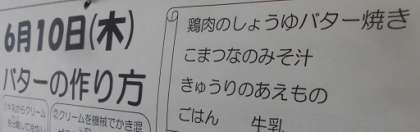 6月10日(木)
バターの作り方
②クリームを機械でかき混
鶏肉のしょうゆバター焼き
こまつなのみそ汁
きゅうりのあえもの
ごはん　牛乳